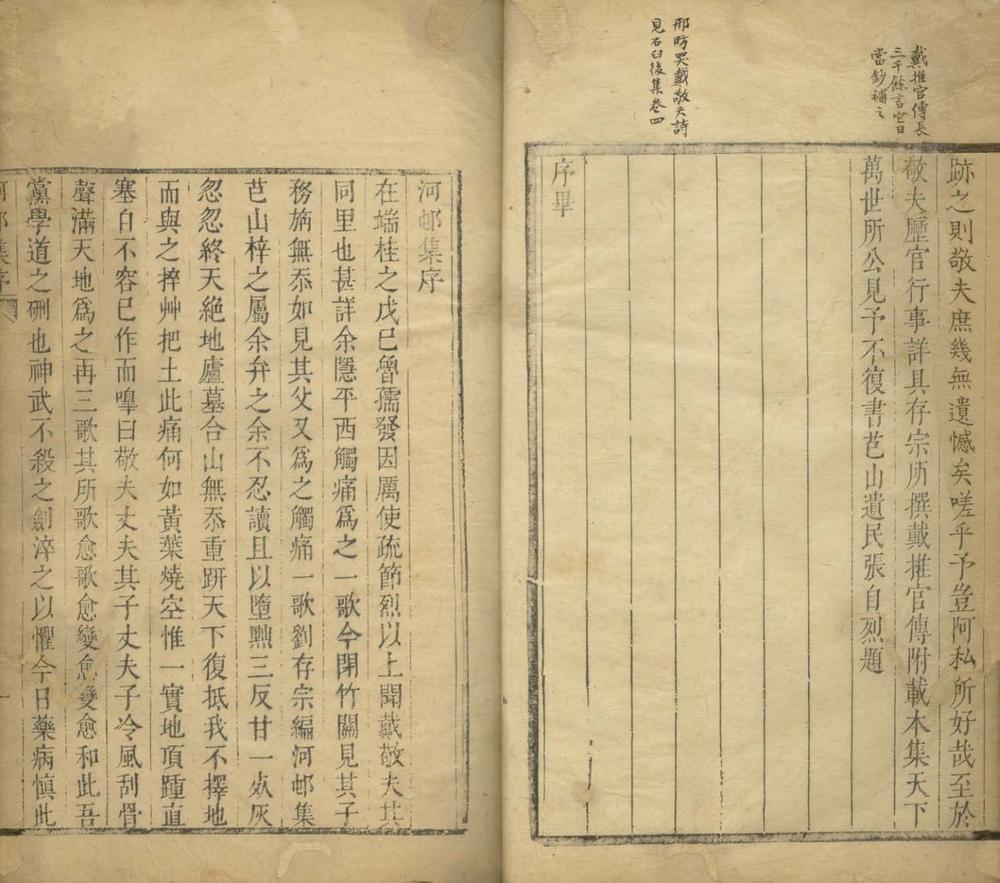 戴推官傳長
三千餘言它日
當鈔補之
邢昉哭戴敬夫詩
見石臼後集卷四
跡之則敬夫庶幾無遺憾矣嗟乎予豈阿私所好哉至於
敬夫歷官行事詳具存宗所撰戴推官傳附載本集天下
萬世所公見予不復書芑山遺民張自烈題
序畢
河邨集序
在端桂之戊巳魯孺發因厲使疏節烈以上聞戴敬夫其
同里也甚詳余隱平西觸痛爲之一歌今閉竹關見其子
務旃無忝如見其父又爲之觸痛一歌劉存宗編河邨集
芑山梓之屬余弁之余不忍讀且以墮黥三反甘一炊灰
忽忽終天絕地廬墓合山無忝重趼天下復抵我不擇地
而與之捽艸把土此痛何如黃葉燒空惟一實地頂踵直
塞自不容已作而嘷曰敬夫丈夫其子丈夫子冷風刮骨
聲滿天地爲之再三歌其所歌愈歌愈變愈變愈和此吾
黨學道之硎也神武不殺之劍淬之以懼今日藥病慎此
河邨集序
一